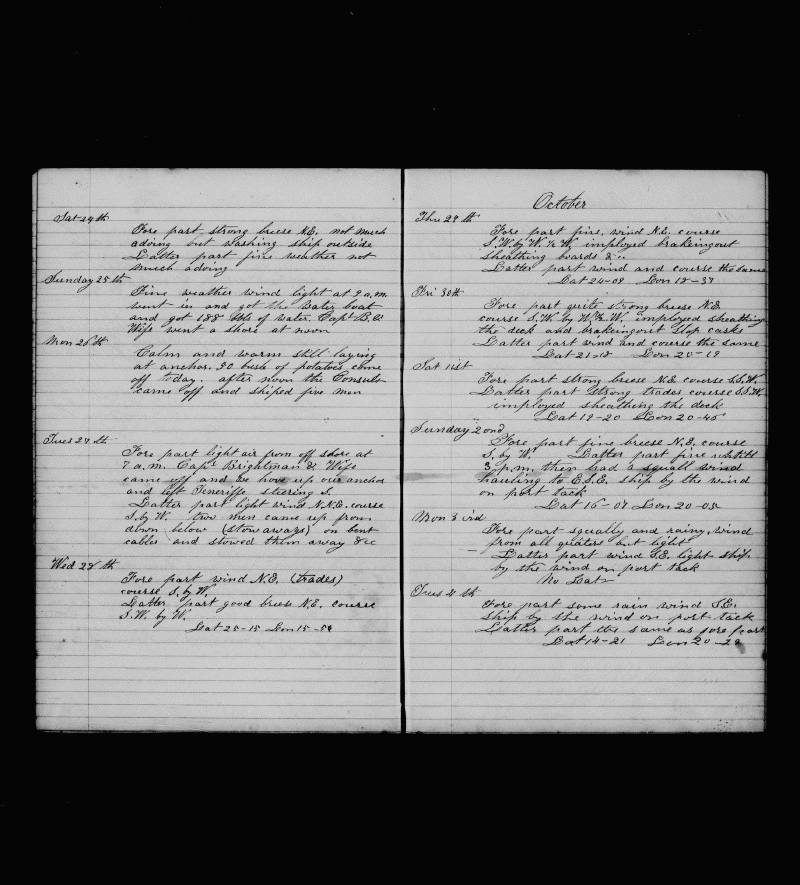 Sat 24 th
Fore part strong breese N.E. not much
adoing but washing ship outside
Latter part fine weather not
much adoing
Sunday 25 th
Fine weather wind light at 9 a.m.
went in and got the Water boat
and got 188 bbls of water. Capt B. &
Wife went a shore at noon
Mon 26 th
Calm and warm still laying
at anchor. 90 bush of potatoes come
off today. after noon the Consuls
came off and shiped five men
Tues 27 th
Fore part light air from off shore at
7 a.m. Capt Brightman & Wife
came off and we hove up our anchor
and left Teneriffe steering S.
Latter part light wind N.N.E. course
S. by W. two men came up from
down below (stowaways) on bent
cables and stowed them away &c
Wed 28 th
Fore part wind N.E. (trades)
course S. by W.
Latter part good breese N.E. course
S.W. by W.
Lat 25-15 Lon 15-54
October
Thu 29 th
Fore part fine, wind N.E. course
S.W. by W. ½ W. imployed brakeingout
sheathing boards &c
Latter part wind and course the same
Lat 24-08 Lon 18-37
Fri 30th
Fore part quite strong breese N.E.
course S.W. by W. ½ W. imployed sheathing
the deck and brakeingout slop casks
Latter part wind and course the same
Lat 21-18 Lon 20-19
Sat 1ist
Fore part strong breese N.E. course S.S.W.
Latter part strong trades course S.S.W.
imployed sheathing the deck
Lat 19-20 Lon 20-45
Sunday 2ond
Fore part fine breese N.E. course
S. by W. Latter part fine untill
3 p.m. then had a squall wind
hauling to E.S.E. ship by the wind
on port tack
Lat 16-07 Lon 20-05
Mon 3 ird
Fore part squally and rainy, wind
from all quaters but light
Latter part wind S.E. light ship
by the wind on port tack
No Lat
Tues 4 th
Fore part some rain wind S.E.
ship by the wind on port tack
Latter part the same as fore part
Lat 14-21 Lon 20-28